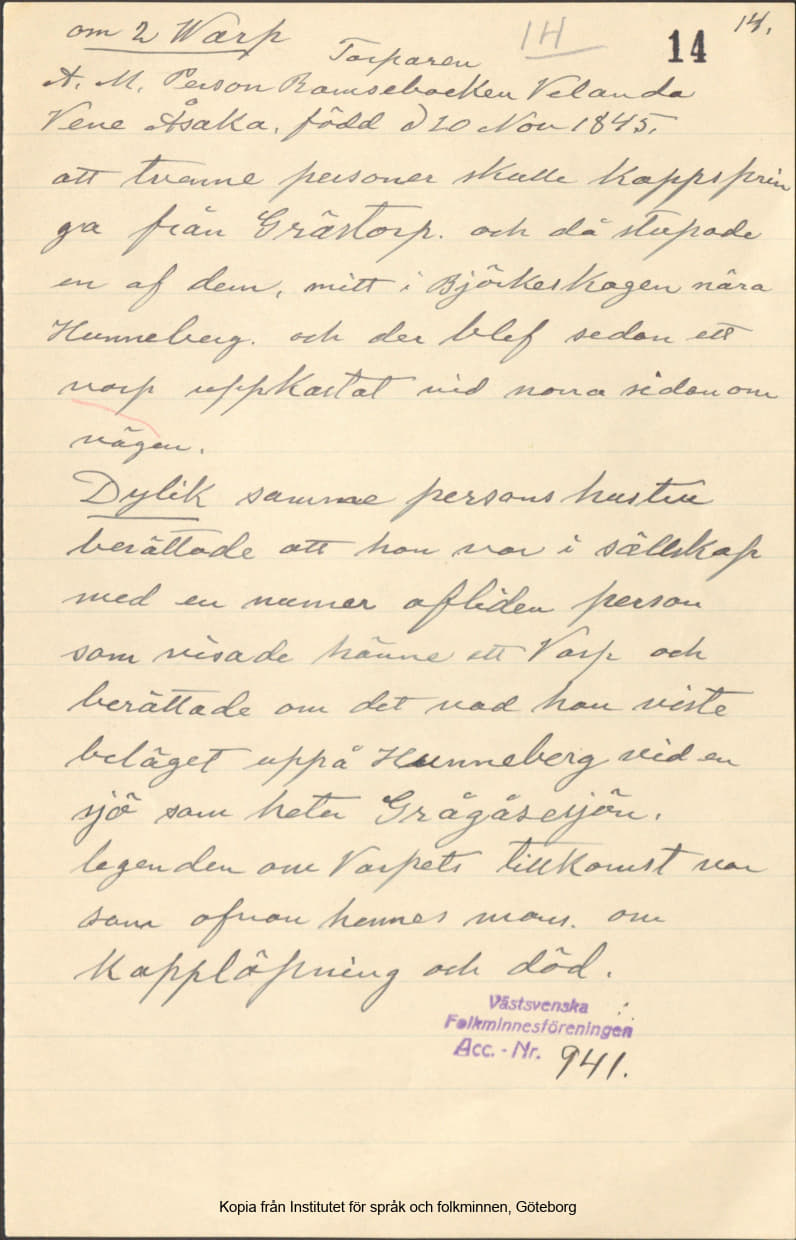 14.
om 2 Warp 14 14
Torparen
A. M. Person Ramsebacken Velanda
Vene Åsaka. född d 20 Nov 1845.
att tvenne personer skulle kappsprin
ga från Grästorp. och då stupade
en af dem, mitt i Björkeskogen nära
Hunneberg. och der blef sedan ett
varp uppkastat vid norra sidan om
vägen.
Dylik samme persons hustru
berättade att hon var i sällskap
med en numer afliden person
som visade hänne ett Varp och
berättade om det vad hon viste
beläget uppå Hunneberg vid en
sjö som heter Grågåsesjön.
legenden om Varpets tillkomst var
som ofvan hennes mans. om
Kapplöpning och död.
Västsvenska
Folkminnesföreningen
Acc. - Nr. 941.
Kopia från Institutet för språk och folkminnen, Göteborg